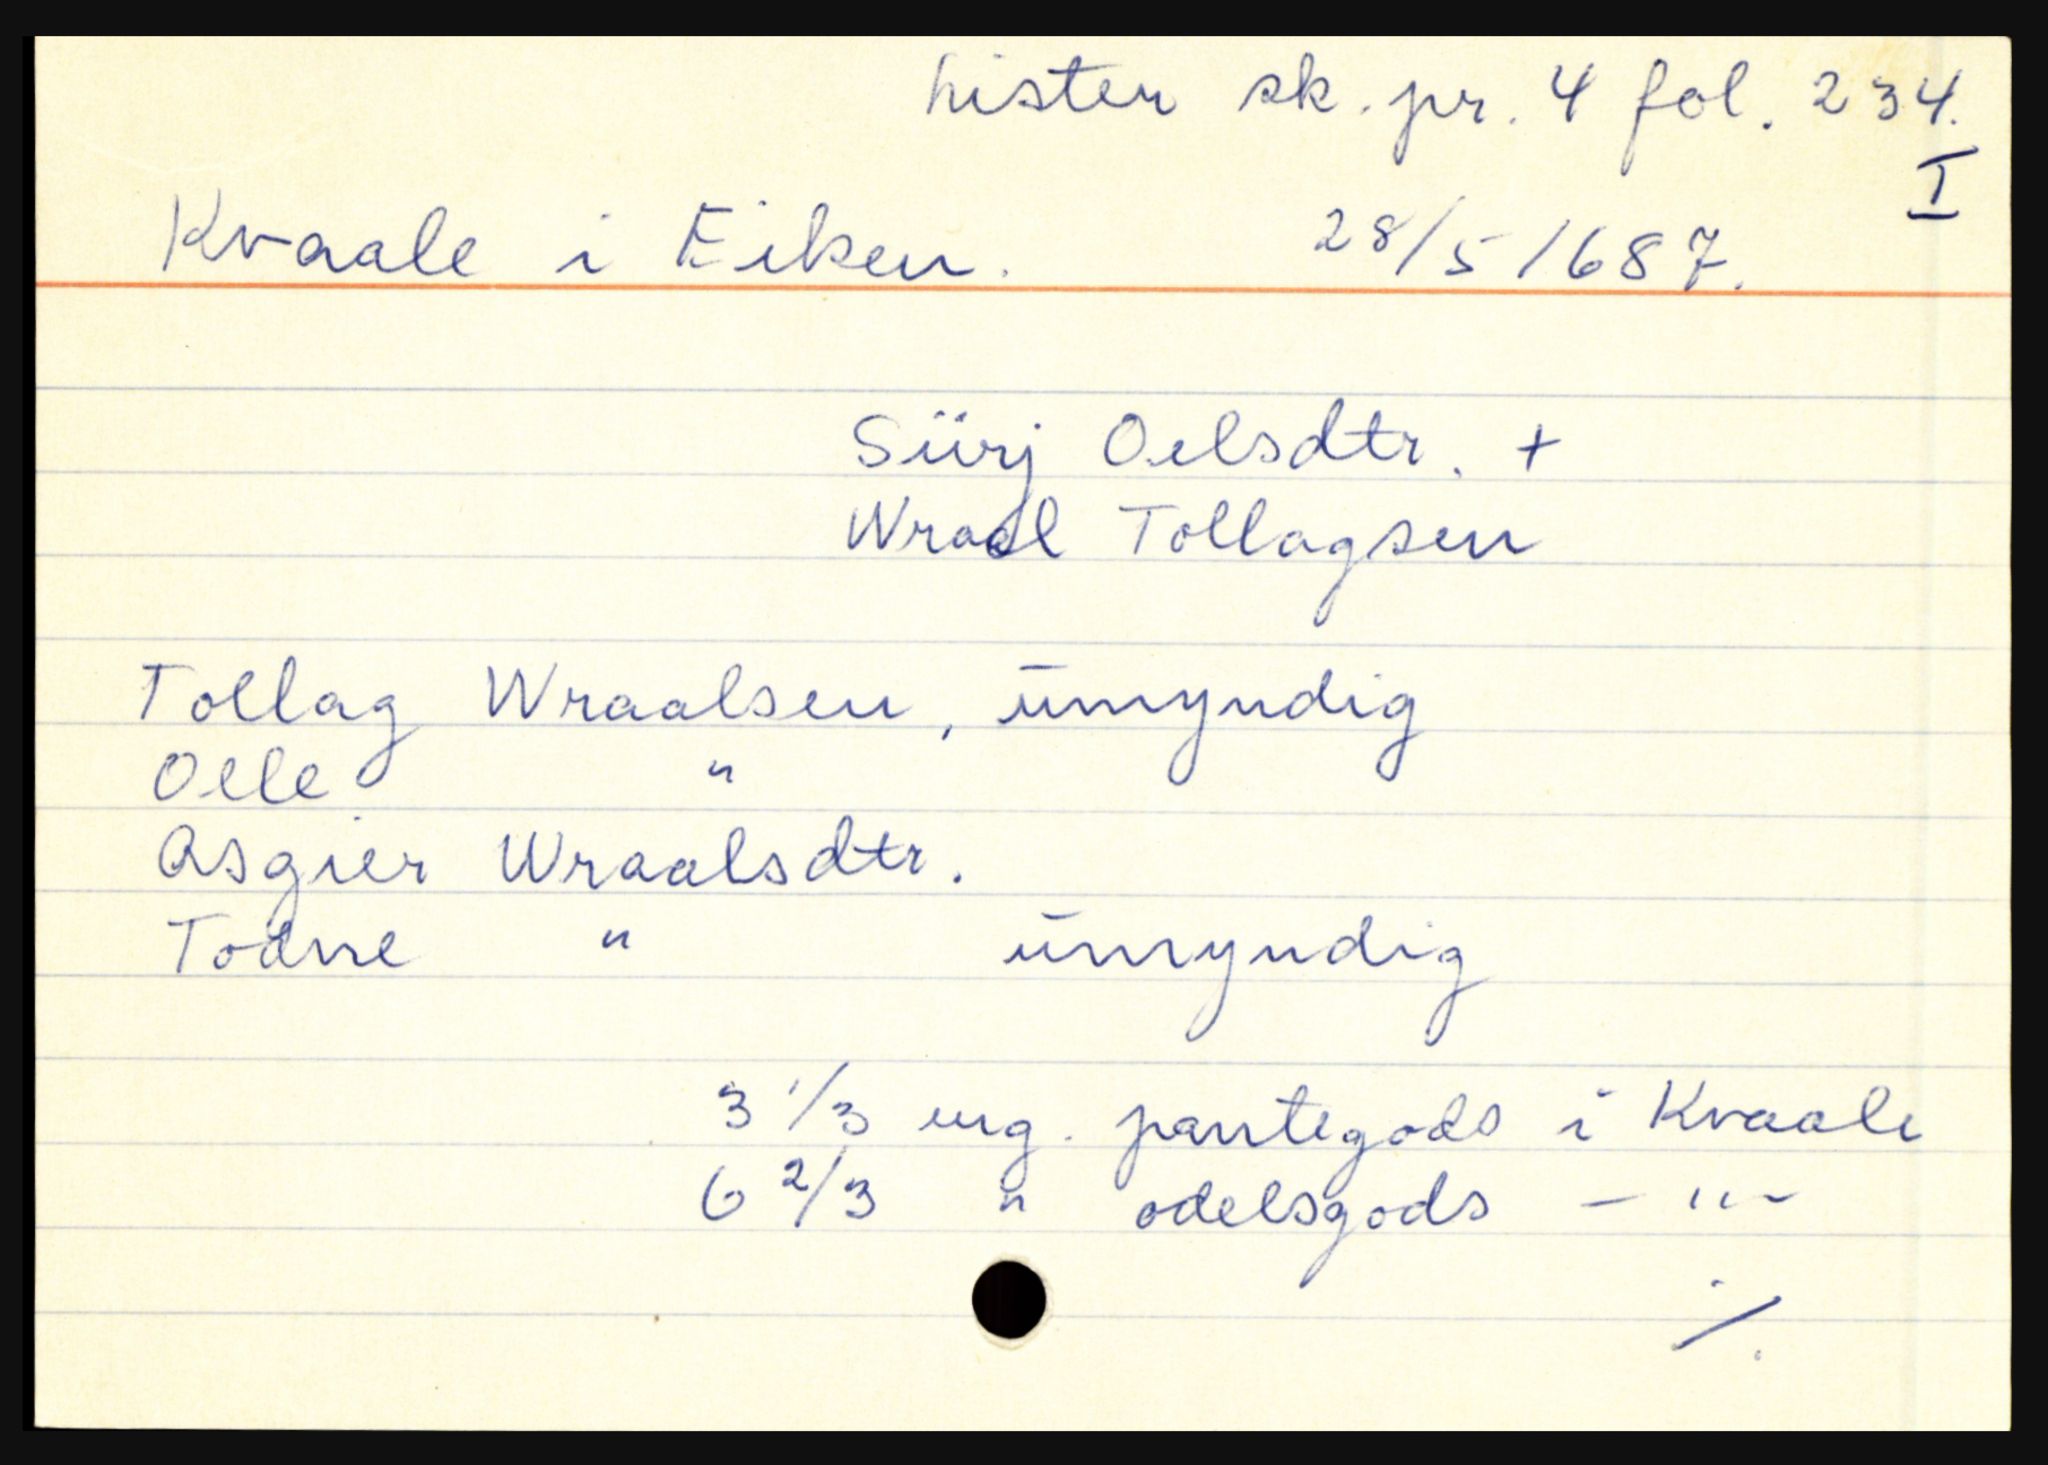 Lister sk.pr. 4 fol. 234.
I
Kvaale i Eiken. 28/5 1687.
Siirj Oelsdtr. +
Wraal Tollagsen
Tollag Wraalsen, ūmyndig
Oele "
Asgier Wraalsdtr.
Todne " ūmyndig
3 1/3 eng. pantegods i Kvaale
6 2/3 " odelsgods - " -
./.